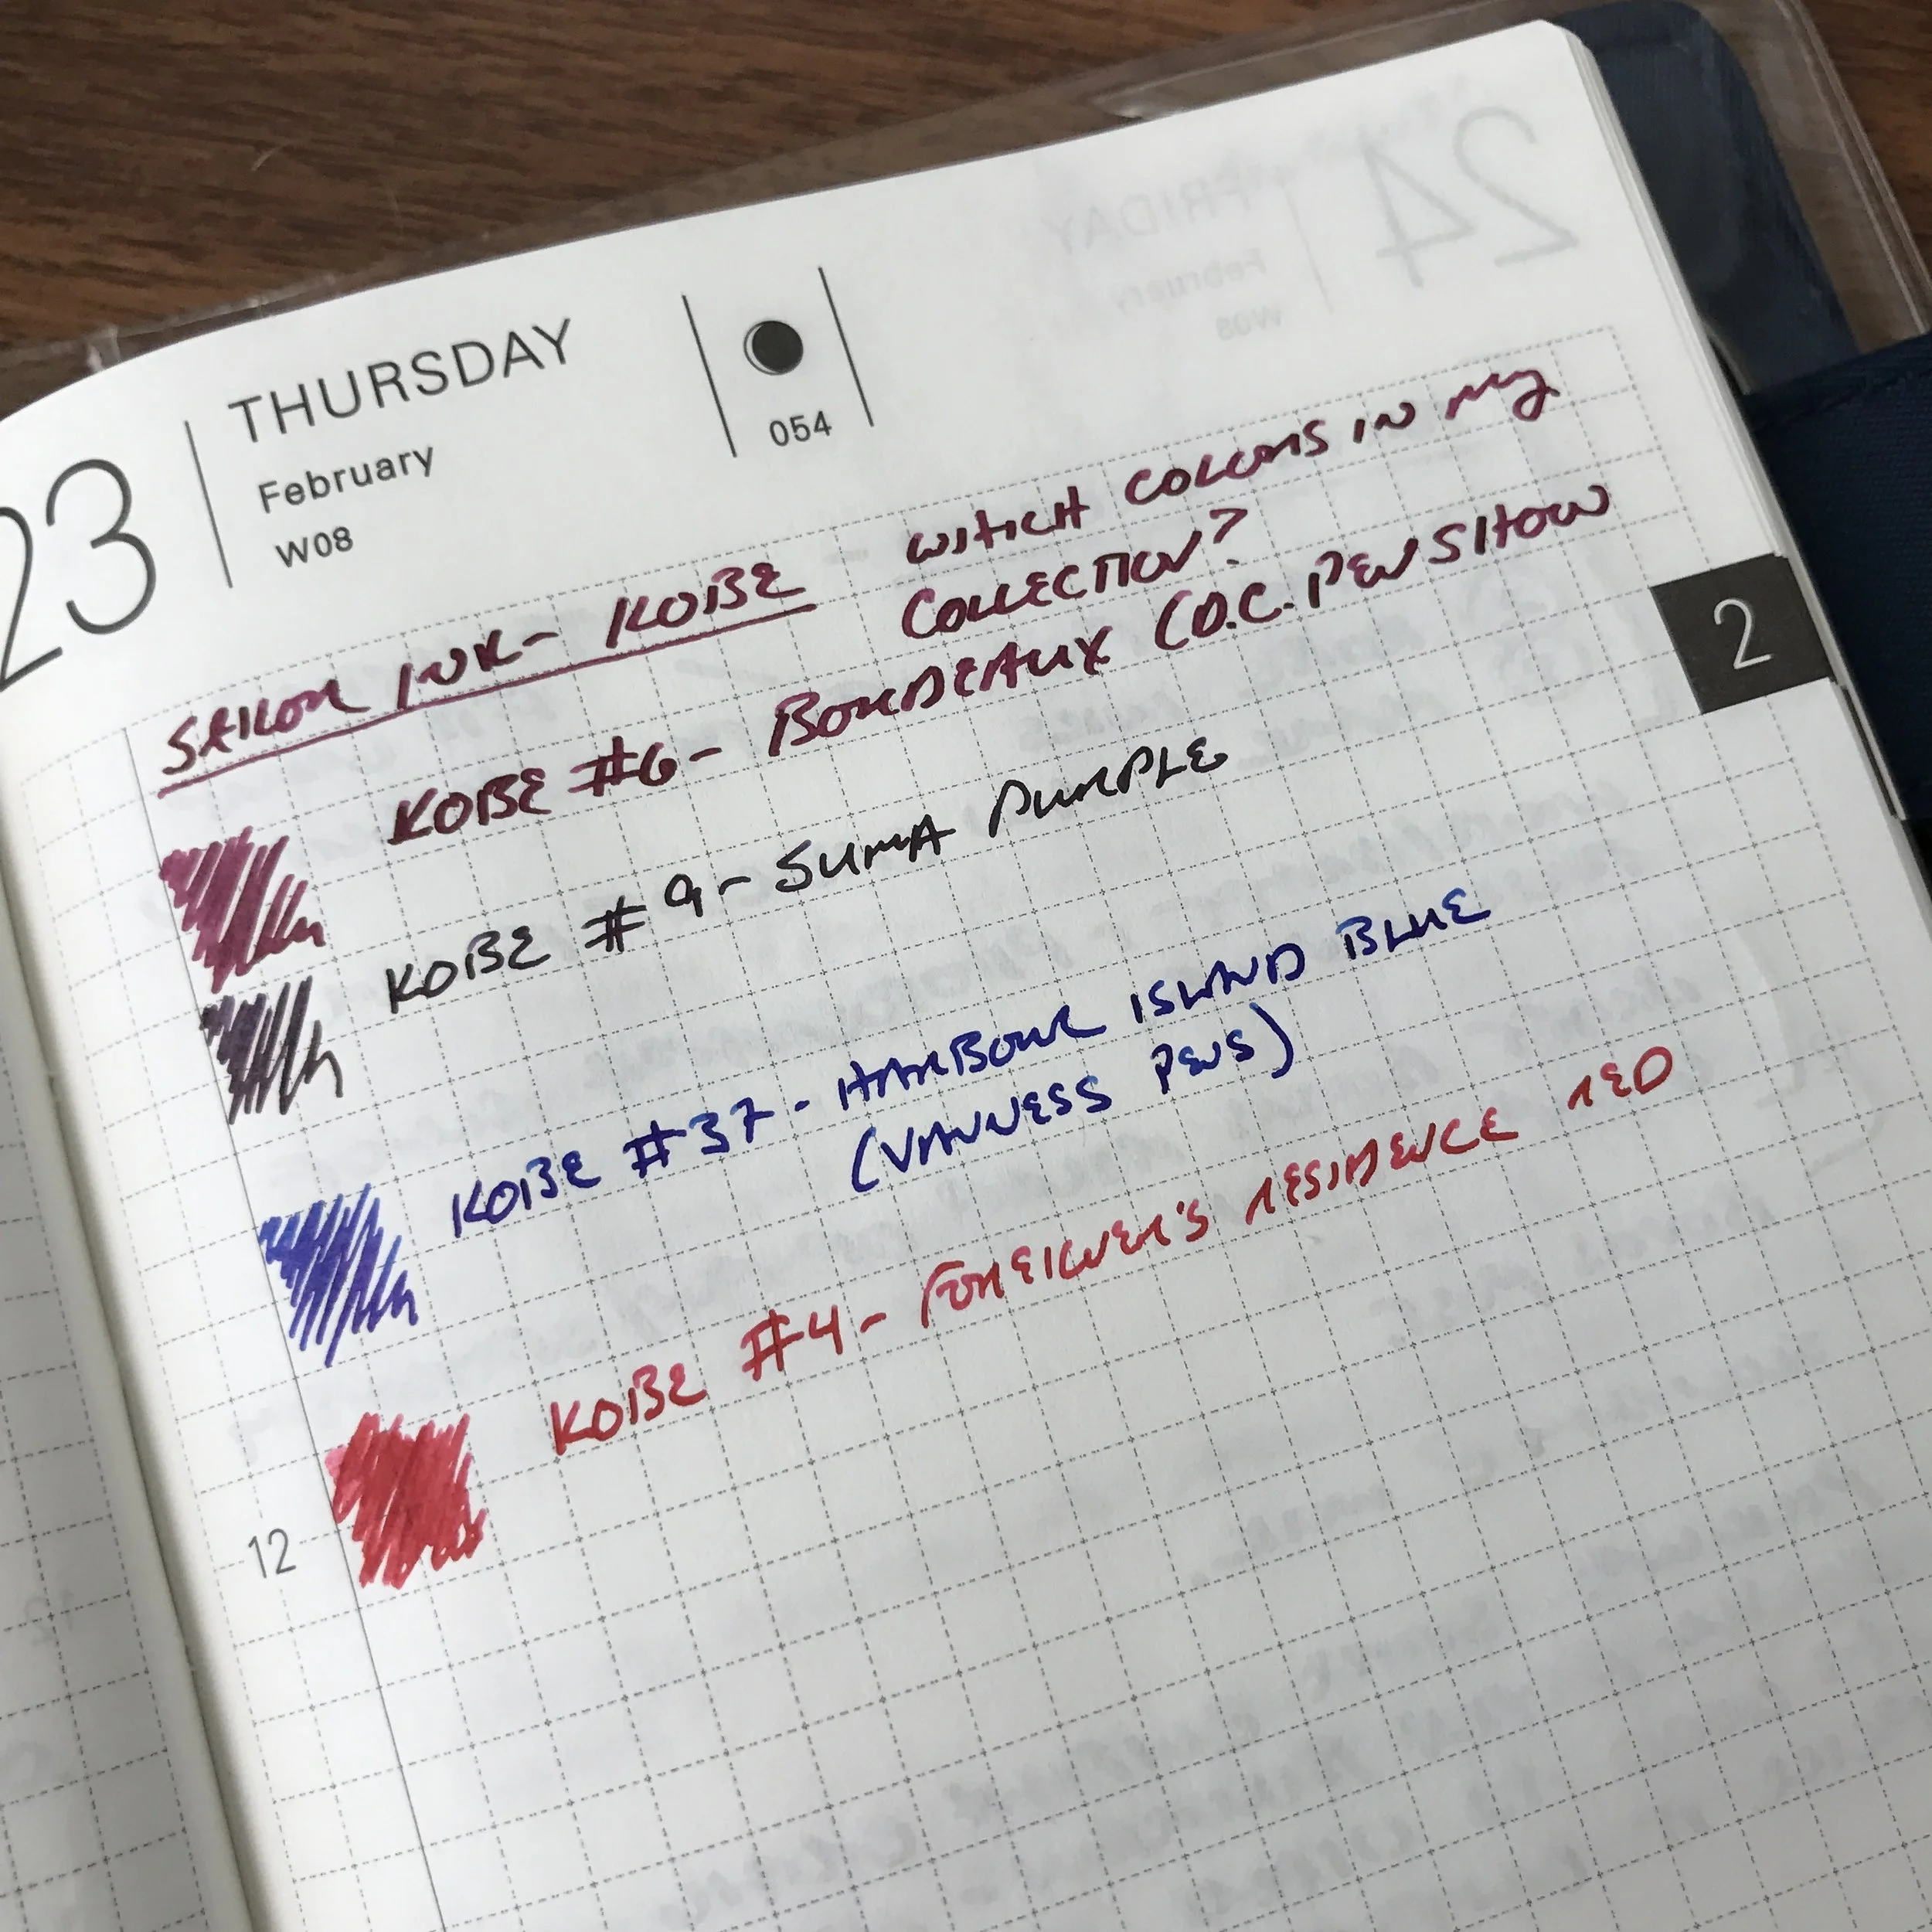 23
THURSDAY
February
W08
054
24
FRIDAY
February
W08
SAILOR INK - KOBE - WHICH COLORS IN MY
COLLECTION?
KOBE #6 - BORDEAUX (D.C. PEN SHOW
KOBE #9 - SUMA PURPLE
2
KOBE #37 - HARBOUR ISLAND BLUE
(VANNESS PENS)
KOBE #4 - FOREIGNER'S RESIDENCE RED
12